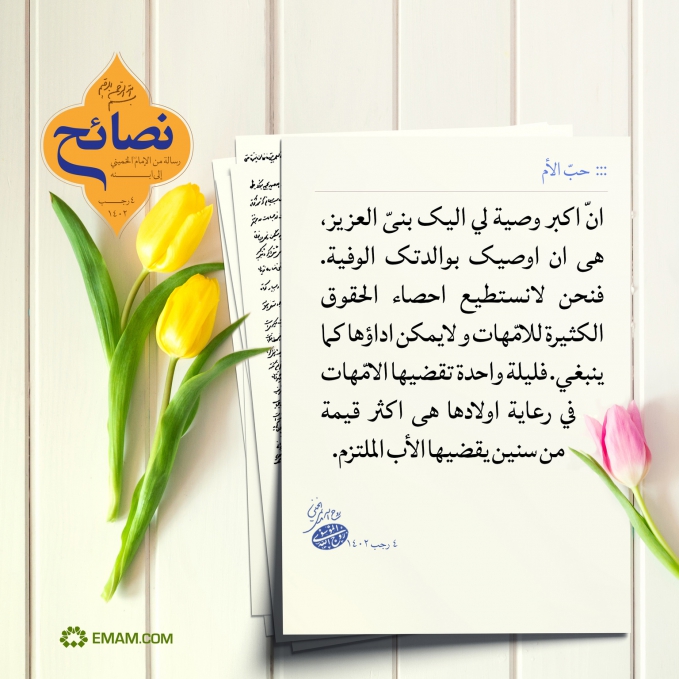 نصائح
رسالة من الإمام الخميني
إلى ابنه
٤ رجب
١٤٠٢
::: حبّ الأم
انّ اكبر وصية لي اليک بنيّ العزيز،
هی ان اوصیک بوالدتک الوفية.
فنحن لانستطيع احصاء الحقوق
الكثيرة للامّهات و لايمكن اداؤها كما
ينبغي. فليلة واحدة تقضيها الامّهات
في رعاية اولادها هی اكثر قيمة
من سنين يقضيها الأب الملتزم.
٤ رجب ١٤٠٢
EMAM.COM